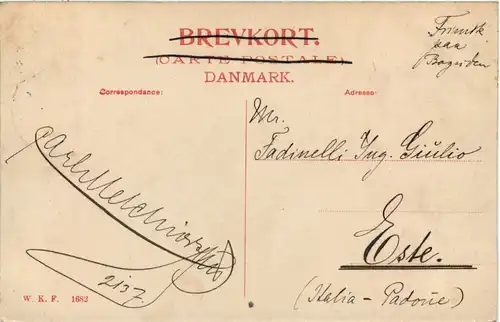 BREVKORT.
(CARTE POSTALE)
DANMARK.
Frimrk.
paa
Bagsiden
Correspondance:
Adresse:
Mr.
Fadinelli Ing. Giulio
Este.
(Italia - Padove)
Carl Melchior
2137.
W. K. F. 1682